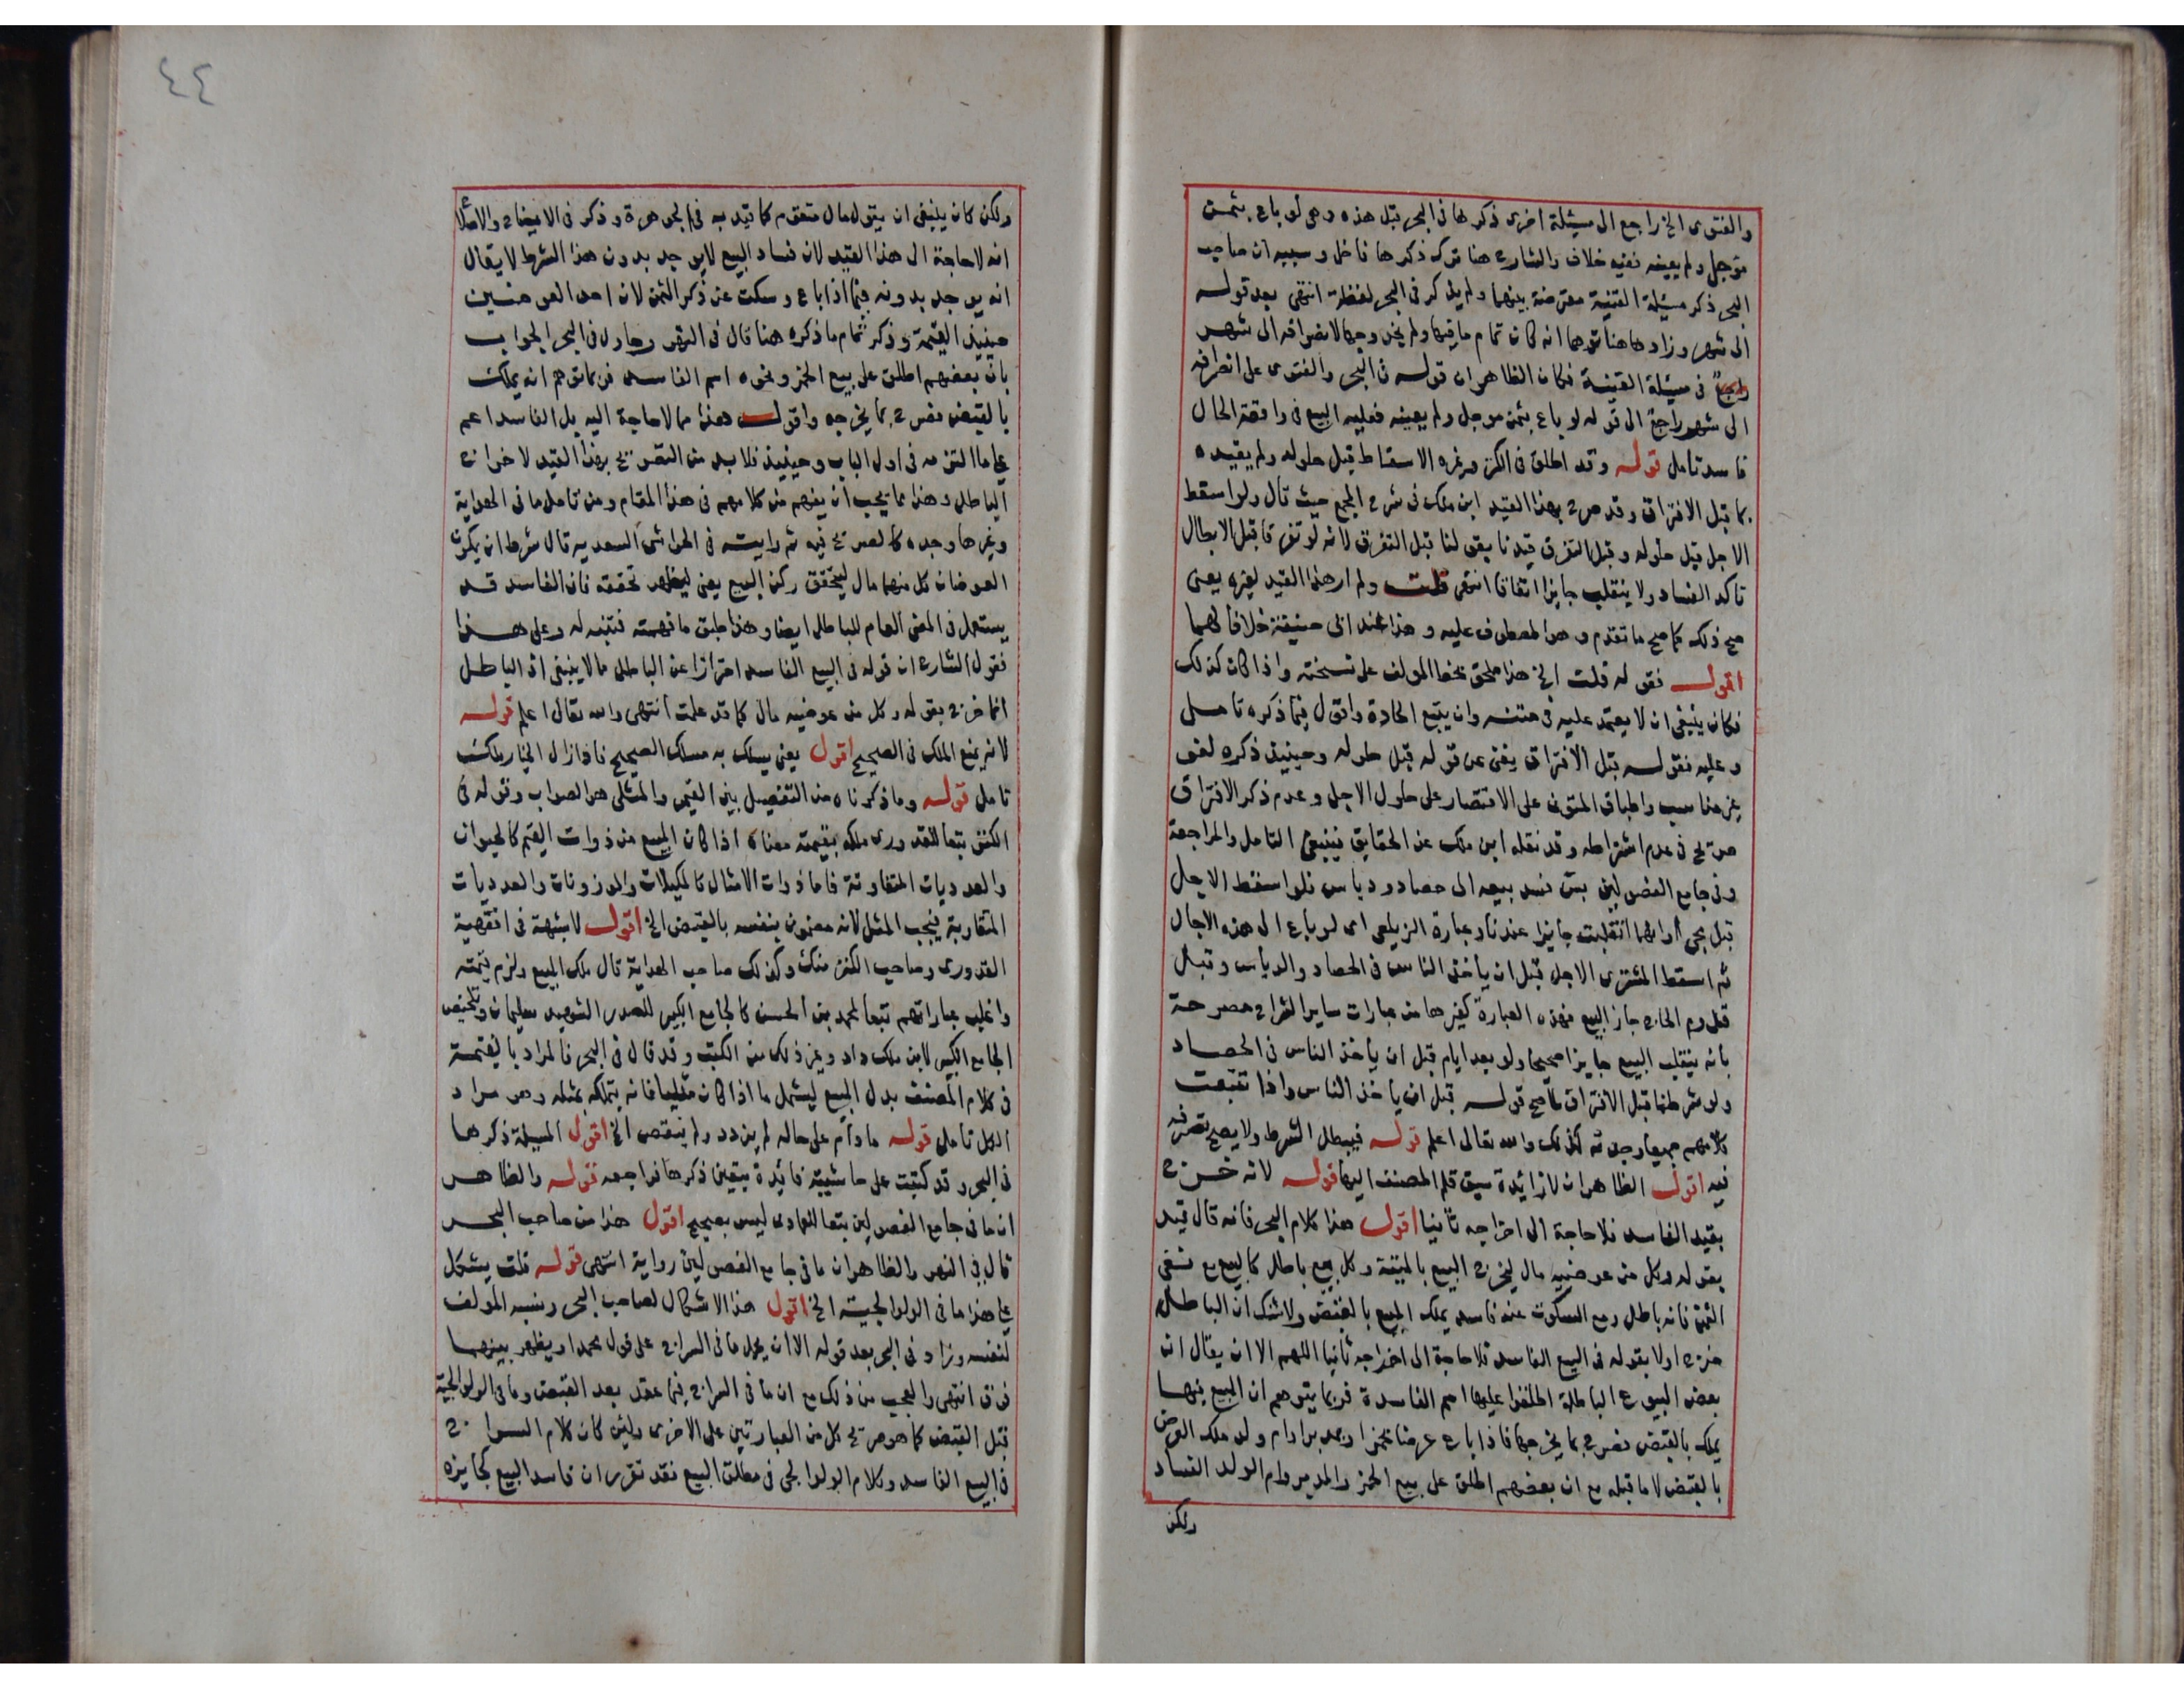 والفتوى الخ راجع الى مسئلة اخرى ذكرها في البحر قبل هذه وهى لو باع بثمن
مؤجل ولم يعينه ففيه خلاف والشارح هنا ترك ذكرها فاخل وسببه ان صاحب
البحر ذكر مسئلة القنية معترضة بينهما ولم يذكر في البحر لفظة انتهى بعد قوله
الى شهر وزادها هنا توهما انه كان تمام ما فيها ولم يخل وجها لانصرافه الى شهر
راجع في مسئلة القنية فكان الظاهر ان قوله في البحر والفتوى على انصرافه
الى شهر راجع الى قوله لو باع بثمن موجل ولم يعينه فعليه البيع في واقعة الحال
فاسد تامل قوله وقد اطلق في الكنز وغيره الاسقاط قبل حلوله ولم يقيده
بما قبل الافتراق وقد صرح بهذا القيد ابن ملك في شرح المجمع حيث قال ولو اسقط
الاجل قبل حلوله وقبل التفرق قيدنا بقولنا قبل التفرق لانه لو تفرقا قبل الابطال
تاكد الفساد ولا ينقلب جايزا اتفاقا انتهى قلت ولم ار هذا القيد لغيره يعنى
صح ذلك كما صح ما تقدم وهو المعطوف عليه وهذا عند ابى حنيفة خلافا لهما
اقول فقوله قلت الخ هذا ملحق بخط المولف على نسخته واذا كان كذلك
فكان ينبغى ان لا يعتمد عليه في متنه وان يتبع الجادة واقول فيما ذكره تامل
وعليه فقوله قبل الافتراق يغنى عن قوله قبل حلوله وحينيذ ذكره لغو
غير مناسب واطباق المتون على الاقتصار على حلول الاجل وعدم ذكر الافتراق
صريح في عدم اشتراطه وقد نقله ابن ملك عن الحقايق فينبغى التامل والمراجعة
وفى جامع الفصولين بش فسد بيعه الى حصاد ودياس فلو اسقط الاجل
قبل مجى أوانهما انقلبت جايزا عندنا وعبارة الزيلعى اى لو باع الى هذه الاجال
ثم اسقط المشترى الاجل قبل ان ياخذ الناس في الحصاد والدياس وقبل
قدوم الحاج جاز البيع فهذه العبارة كغيرها من عبارات ساير الشراح مصرحة
بانه ينقلب البيع جايزا صحيحا ولو بعد ايام قبل ان ياخذ الناس في الحصاد
ولو شرطنا قبل الافتراق لما صح قوله قبل ان ياخذ الناس واذا تتبعت
كلامهم جميعا وجدته كذلك والله تعالى اعلم قوله فيبطل الشرط ولا يصح تصرفه
فيه اقول الظاهر ان لا زائدة سبق قلم المصنف اليها قوله لانه خرج
بقيد الفاسد فلا حاجة الى اخراجه ثانيا اقول هذا كلام البحر فانه قال قيد
بقوله وكل من عوضيه مال ليخرج البيع بالميتة وكل بيع باطل كالبيع مع نفى
الثمن فانه باطل ومع السكوت عنه فاسد يملك المبيع بالقبض ولا شك ان الباطل
خرج اولا بقوله في البيع الفاسد فلا حاجة الى اخراجه ثانيا اللهم الا ان يقال ان
بعض البيوع الباطلة اطلقوا عليها اسم الفاسدة فربما يتوهم ان المبيع فيها
يملك بالقبض فصرح بما يخرجها فاذا باع عرضا بخمر او بمدبر او ام ولد ملك العرض
بالقبض لا ما قبله مع ان بعضهم اطلق على بيع الخمر والمدبر وام الولد الفساد
ولكن
٤٤
ولكن كان ينبغى ان يقول مال متقوم كما قيد به في الجوهرة وذكر في الايضاح والاصلاح
انه لا حاجة الى هذا القيد لان فساد البيع لا يوجد بدون هذا الشرط لا يقال
انه يوجد بدونه فيما اذا باع وسكت عن ذكر الثمن لان احد العوضين
حينيذ القيمة وذكر تمام ما ذكره هنا قال في النهر وحاول في البحر الجواب
بان بعضهم اطلق على بيع الخمر ونحوه اسم الفاسد فربما توهم انه يملك
بالقبض فصرح بما يخرجه واقول هذا مما لا حاجة اليه بل الفاسد اعم
على ما التزمه في اول الباب وحينيذ فلا بد من التصريح بهذا القيد لاخراج
الباطل وهذا مما يجب ان يفهم من كلامهم في هذا المقام ومن تامل ما في الهداية
وغيرها وجده كالصريح فيه ثم رايت في الحواشى السعدية قال شرط ان يكون
العوضان كل منهما مال ليتحقق ركن البيع يعنى ليظهر تحققه فان الفاسد قد
يستعمل في المعنى العام للباطل ايضا وهذا طبق ما فهمته فتنبه له وعلى هذا
فقول الشارح ان قوله في البيع الفاسد احترازا عن الباطل مما لا ينبغى اذ الباطل
انما خرج بقوله وكل من عوضيه مال كما قد علمت انتهى والله تعالى اعلم قوله
لانه يمنع الملك في الصحيح اقول يعنى يسلك به مسلك الصحيح فاذا زال الخيار ملك
تامل قوله وما ذكرناه من التفصيل بين القيمى والمثلى هو الصواب وقوله في
الكنز تبعا للقدورى ملكه بقيمته معناه اذا كان المبيع من ذوات القيم كالحيوان
والعدديات المتفاوتة فاما ذوات الامثال كالمكيلات والموزونات والعدديات
المتقاربة فيجب المثل لانه مضمون بنفسه بالقبض الخ اقول لا شبهة في افقهية
القدورى وصاحب الكنز منك وكذلك صاحب الهداية قال ملك المبيع ولزم قيمته
واغلب عباراتهم تبعا لمحمد بن الحسن كالجامع الكبير للصدر الشهيد سليمان وتلخيص
الجامع الكبير لابن ملك داد وغير ذلك من الكتب وقد قال في البحر فالمراد بالقيمة
في كلام المصنف بدل المبيع ليشمل ما اذا كان مثليا فانه يتملكه بمثله وهو مراد
الكل تامل قوله ما دام على حاله لم يزدد ولم ينتقص الخ اقول المسيلة ذكرها
في البحر وقد كتبت على حاشيته فائدة يتعين ذكرها فراجعه قوله والظاهر
ان ما في جامع الفصولين تبعا للعمادى ليس بصحيح اقول هذا من صاحب البحر
قال في النهر والظاهر ان ما في جامع الفصولين رواية انتهى قوله قلت يشكل
على هذا ما في الولوالجية الخ اقول هذا الاشكال لصاحب البحر ونسبه المولف
لنفسه وزاد في البحر بعد قوله الا ان يحمل ما في السراج على قول محمد او يظهر بينهما
فرق انتهى والعجب من ذلك مع ان ما في السراج فيما عقد بعد القبض وما في الولوالجية
قبل القبض كما هو صريح كل من العبارتين على الاخرى ولئن كان كلام السراج
في البيع الفاسد وكلام الولوالجى في مطلق البيع فقد تقرر ان فاسد البيع كجايزه